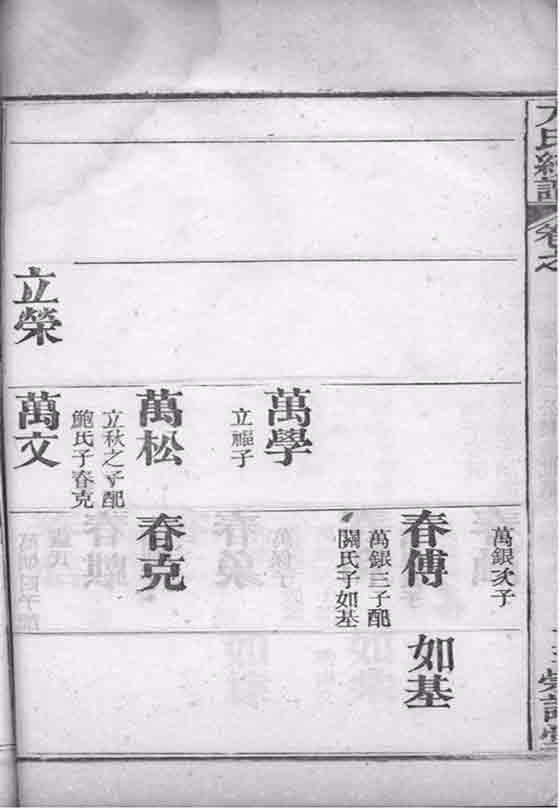 氏統譜
卷之
立榮
萬學
立福子
萬松
立秋之子配
鮑氏子春克
萬文
萬銀次子
春傅
萬銀三子配
關氏子如基
春克
如基